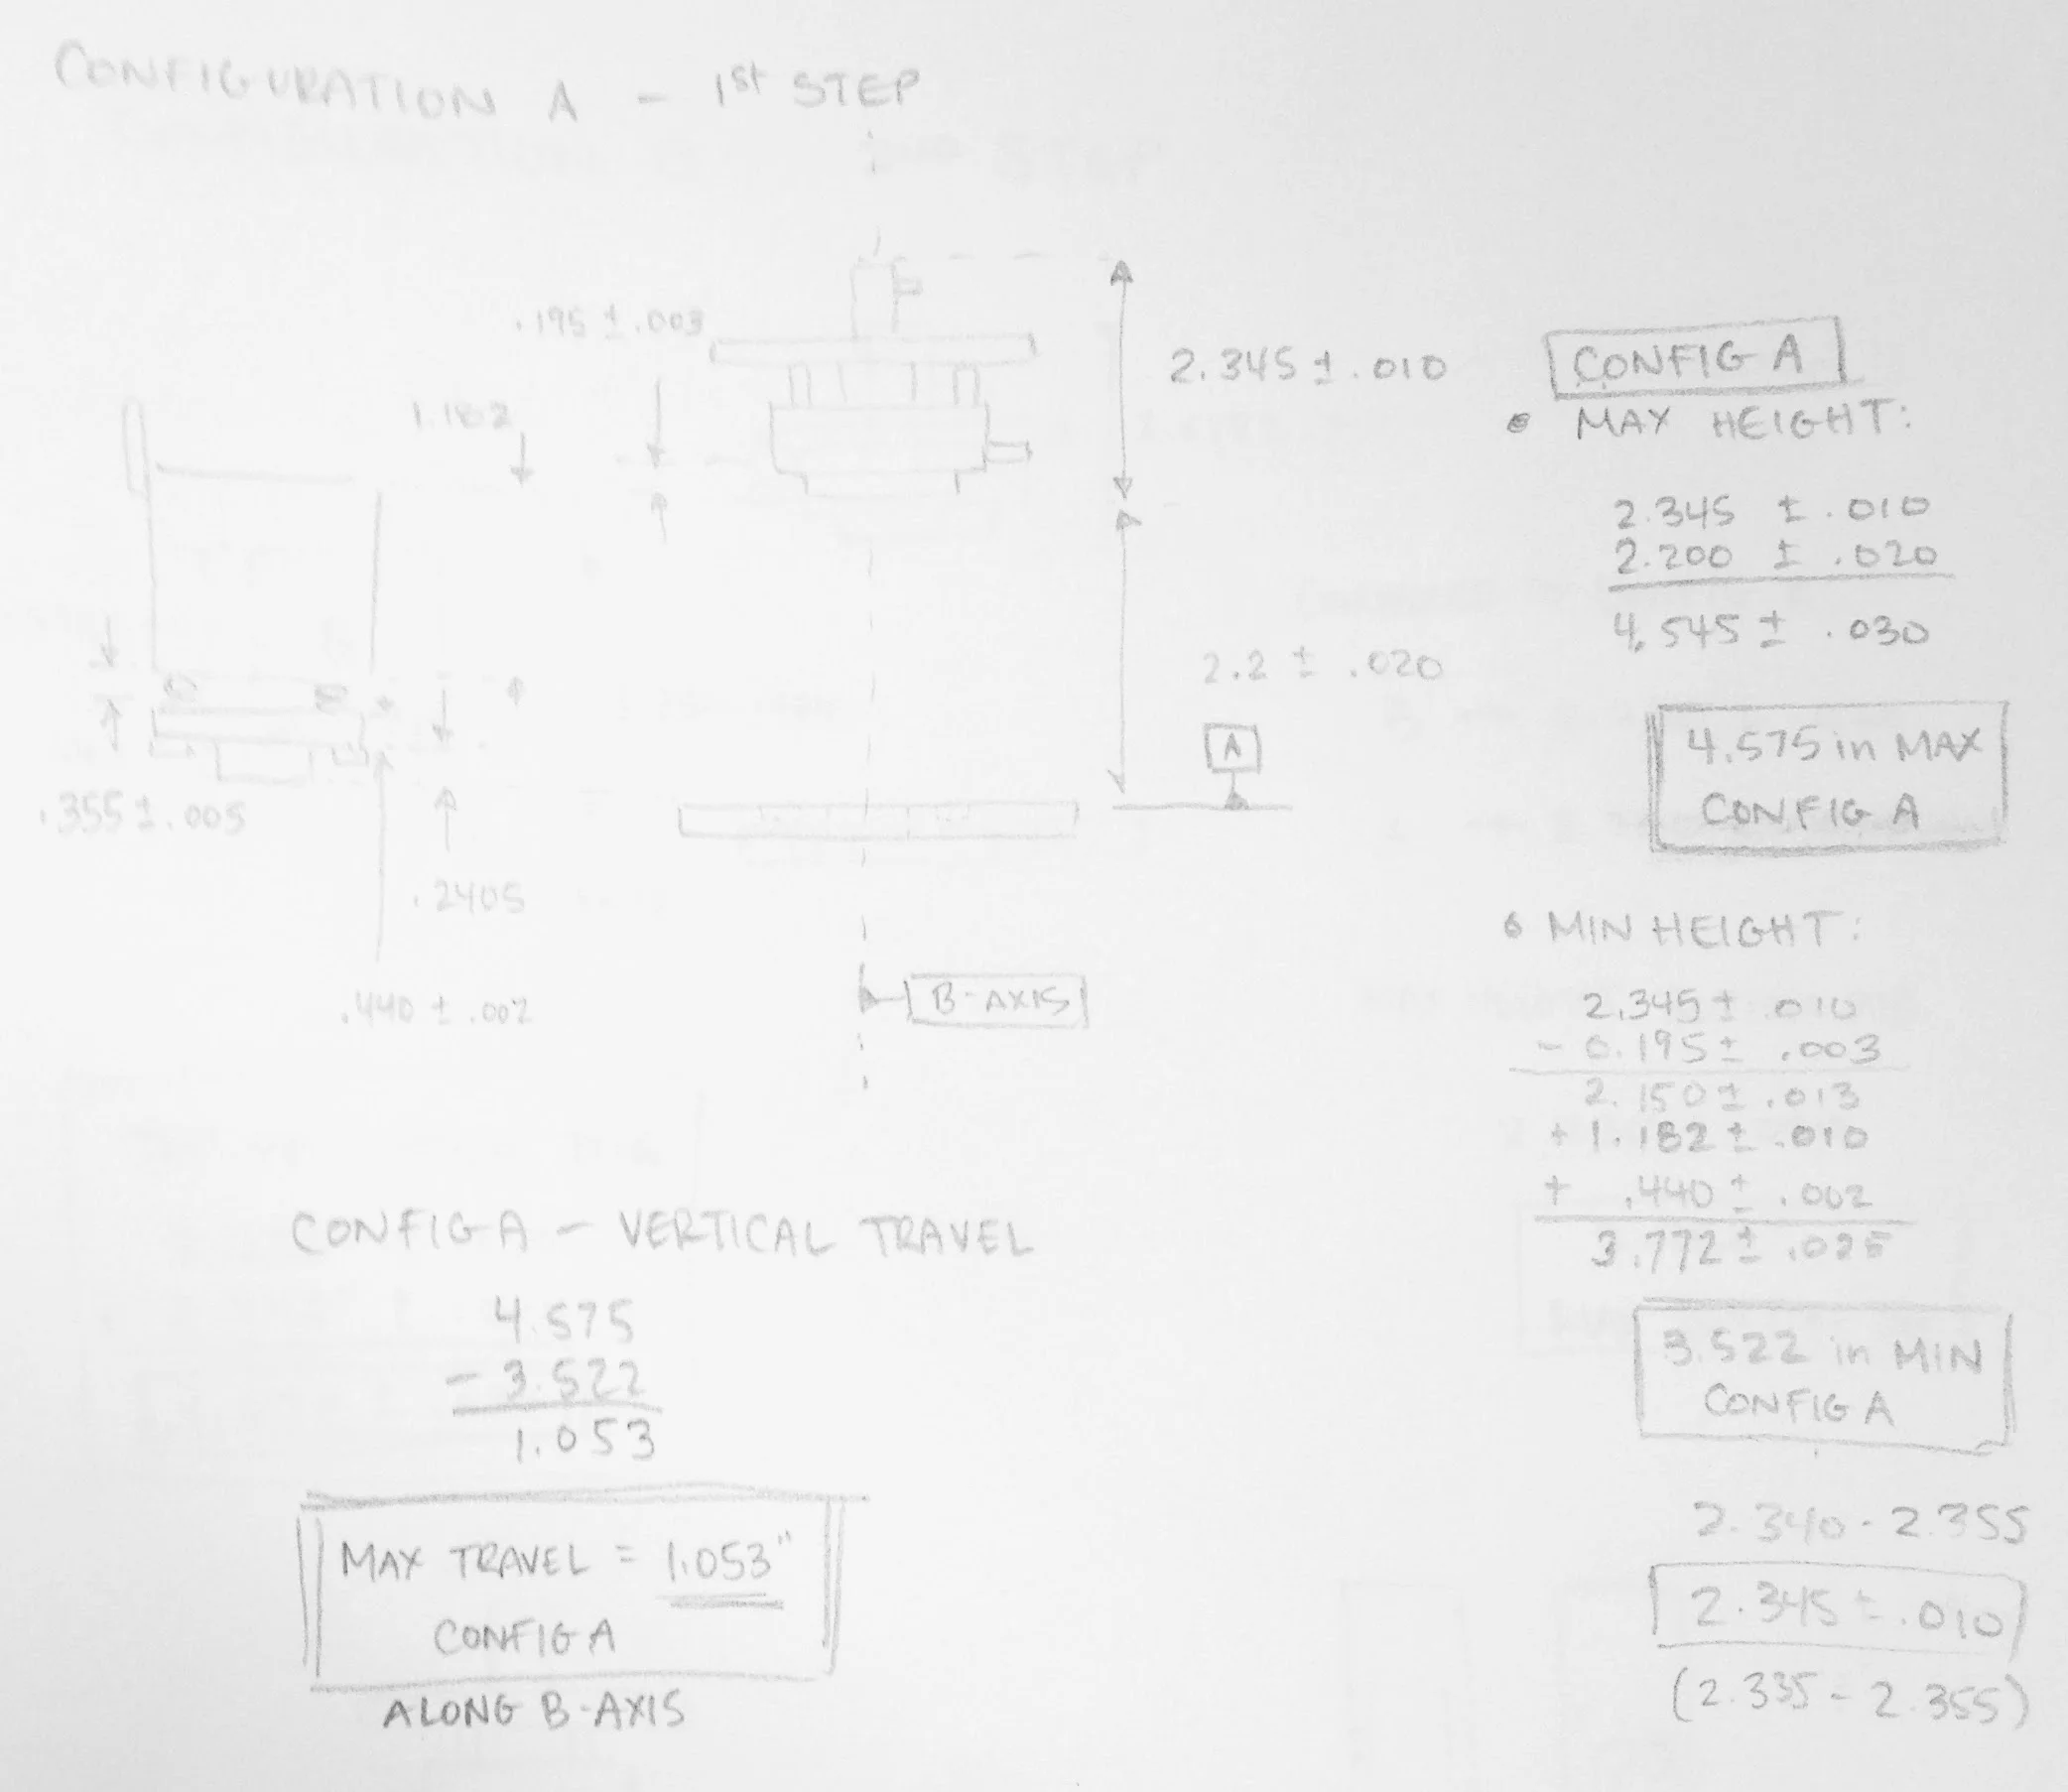 CONFIGURATION A - 1st STEP
.195 ± .003
1.182
2.345 ± .010
2.2 ± .020
A
.355 ± .005
.2405
.440 ± .002
B-AXIS
CONFIG A
MAX HEIGHT:
2.345 ± .010
2.200 ± .020
4.545 ± .030
4.575 in MAX
CONFIG A
MIN HEIGHT:
2.345 ± .010
- 0.195 ± .003
2.150 ± .013
+ 1.182 ± .010
+ .440 ± .002
3.772 ± .025
3.522 in MIN
CONFIG A
2.340 - 2.355
2.345 ± .010
(2.335 - 2.355)
CONFIG A - VERTICAL TRAVEL
4.575
- 3.522
1.053
MAX TRAVEL = 1.053"
CONFIG A
ALONG B-AXIS